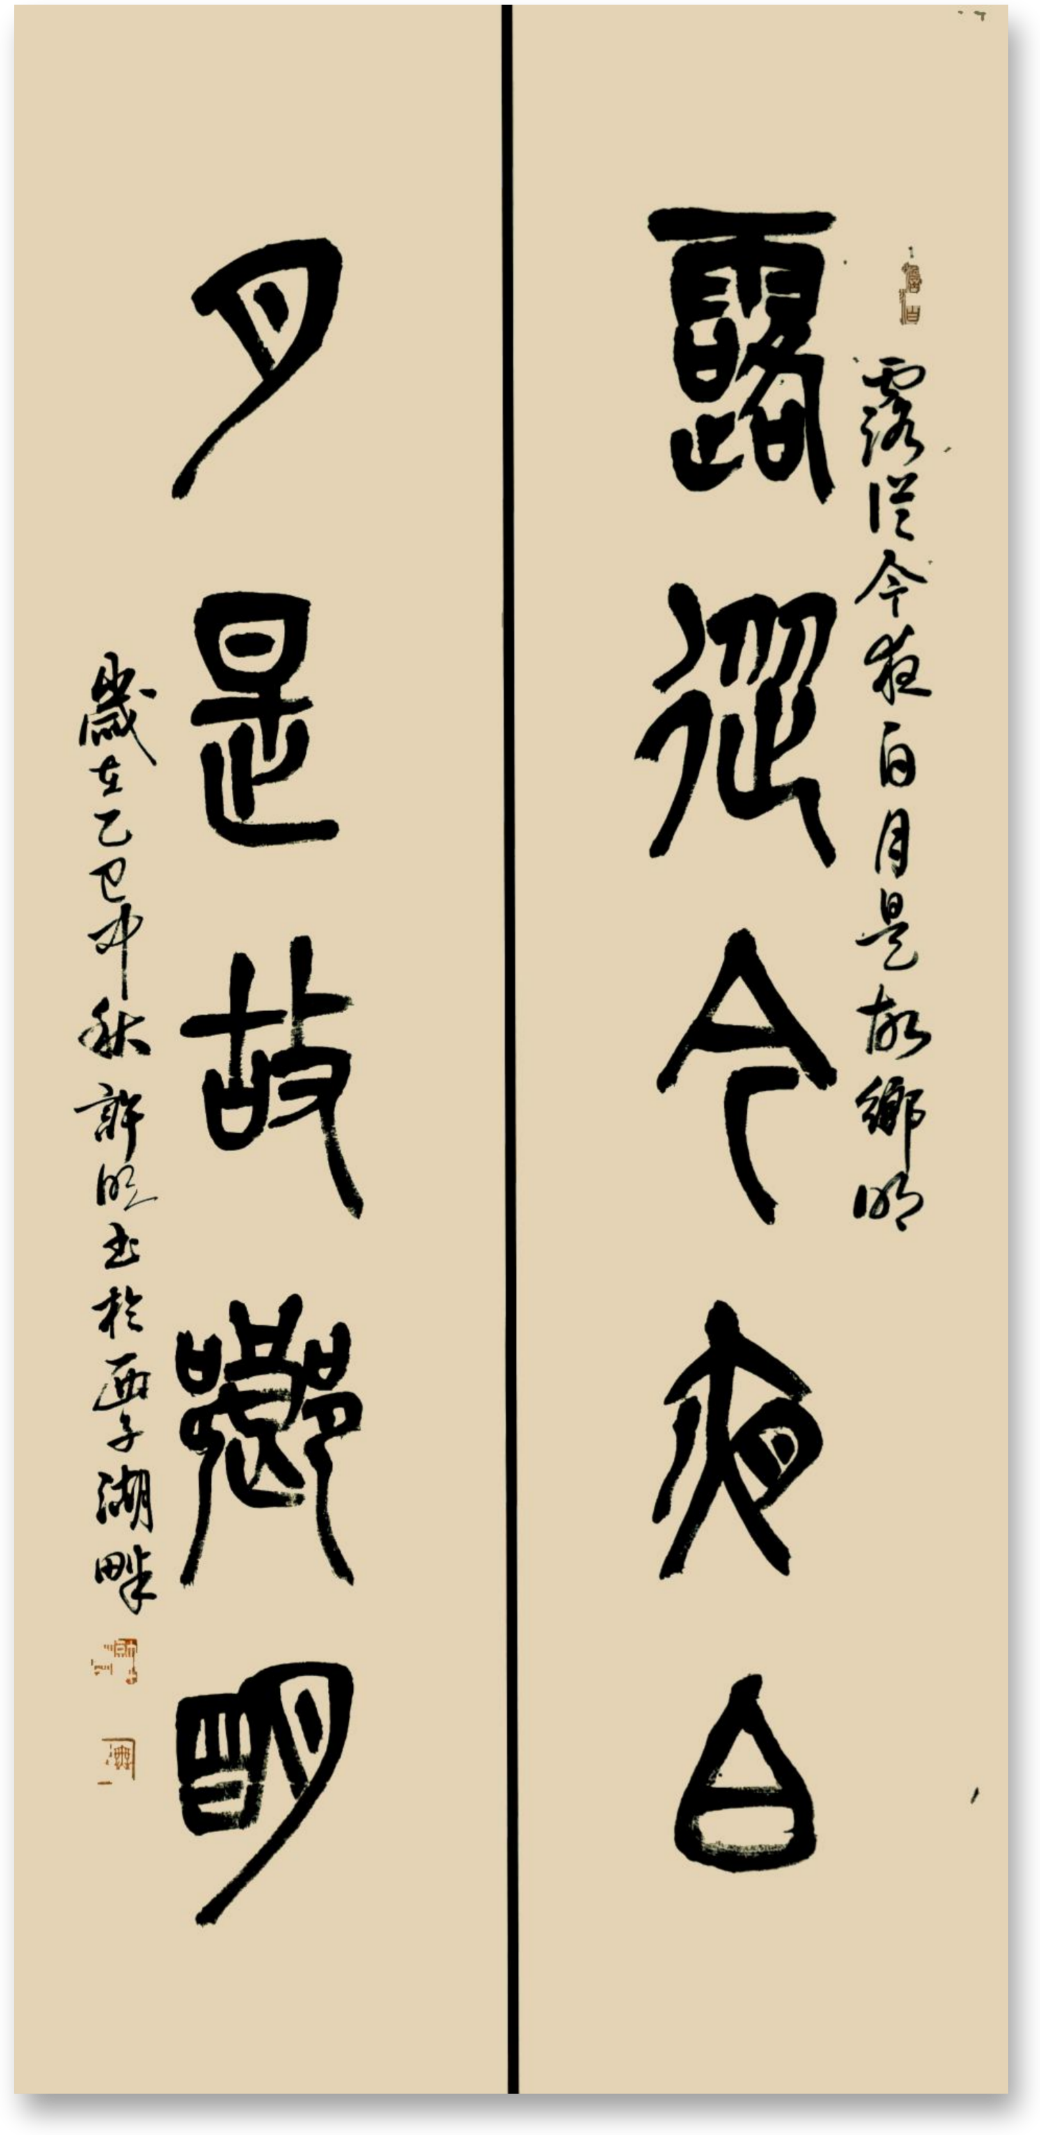 露從今夜白
露從今夜白月是故鄉明
月是故鄉明
歲在乙巳中秋許明書於西子湖畔